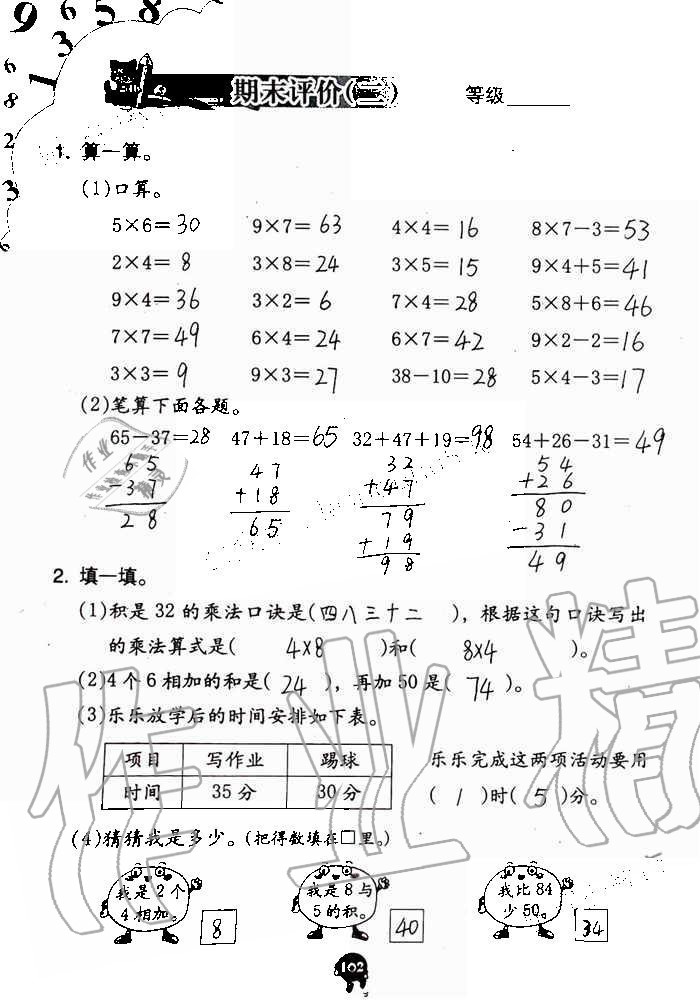 9 6 5 8
1 3 5
6
8
2
3
6
期末评价(二)
等级______
1. 算一算。
(1)口算。
5×6=30 9×7=63 4×4=16 8×7-3=53
2×4=8 3×8=24 3×5=15 9×4+5=41
9×4=36 3×2=6 7×4=28 5×8+6=46
7×7=49 6×4=24 6×7=42 9×2-2=16
3×3=9 9×3=27 38-10=28 5×4-3=17
(2)笔算下面各题。
65-37=28 47+18=65 32+47+19=98 54+26-31=49
65 47 32 54
-37 +18 +47 +26
28 65 79 80
+19 -31
98 49
2. 填一填。
(1)积是 32 的乘法口诀是(四八三十二 ),根据这句口诀写出
的乘法算式是( 4×8 )和( 8×4 )。
(2)4 个 6 相加的和是( 24 ),再加 50 是( 74 )。
(3)乐乐放学后的时间安排如下表。
项目 写作业 踢球
时间 35 分 30 分
乐乐完成这两项活动要用
( 1 )时( 5 )分。
(4)猜猜我是多少。(把得数填在□里。)
我是 2 个
4 相加。
8
我是 8 与
5 的积。
40
我比 84
少 50。
34
102
作业精